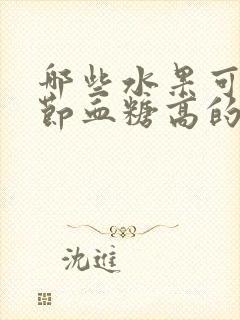 哪些水果可
节血糖高的
沈进